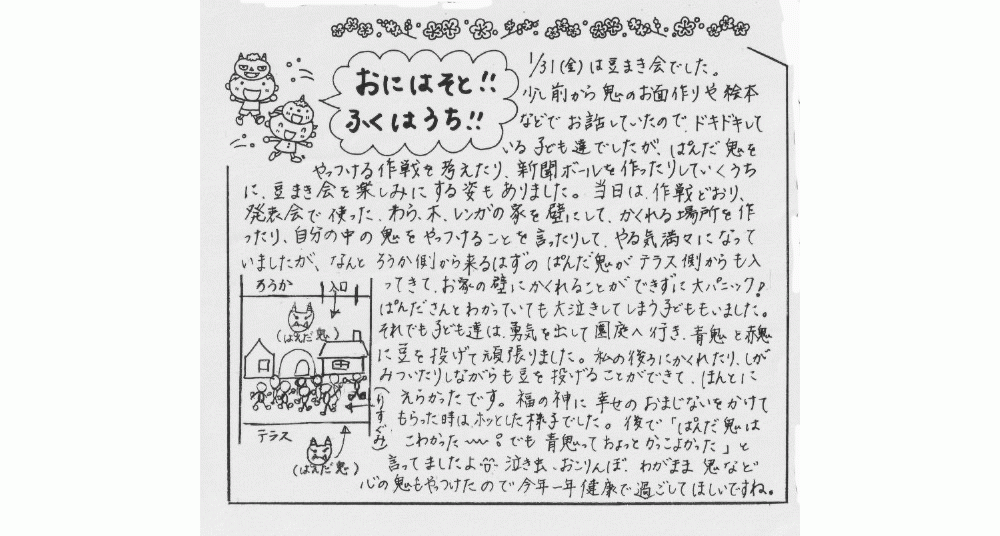 おにはそと!!
ふくはうち!!
1/31(金)は豆まき会でした。
少し前から鬼のお面作りや絵本
などでお話していたので、ドキドキして
いる子ども達でしたが、ぱんだ鬼を
やっつける作戦を考えたり、新聞ボールを作ったりしていくうち
に、豆まき会を楽しみにする姿もありました。当日は、作戦どおり、
発表会で使った、わら、木、レンガの家を壁にして、かくれる場所を作
ったり、自分の中の鬼をやっつけることを言ったりして、やる気満々になって
いましたが、なんとろうか側から来るはずのぱんだ鬼がテラス側からも入
ってきて、お家の壁にかくれることができずに大パニック!
ぱんださんとわかっていても大泣きしてしまう子どももいました。
それでも子ども達は、勇気を出して園庭へ行き、青鬼と赤鬼
に豆を投げて頑張りました。私の後ろにかくれたり、しが
みついたりしながらも豆を投げることができて、ほんとに
えらかったです。福の神に幸せのおまじないをかけて
もらった時は、ホッとした様子でした。後で「ぱんだ鬼は
こわかった〜。でも青鬼ってちょっとかっこよかった」と
言ってましたよ。泣き虫、おこりんぼ、わがまま鬼など
心の鬼もやっつけたので今年一年健康で過ごしてほしいですね。
ろうか
入口
(ぱんだ鬼)
(りすぐみ)
テラス
(ぱんだ鬼)